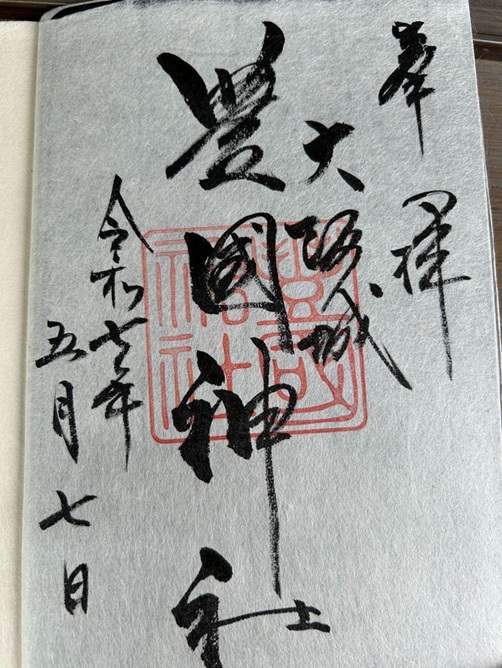 奉拝
大阪城
豊國神社
令和七年
五月七日
豊国神社